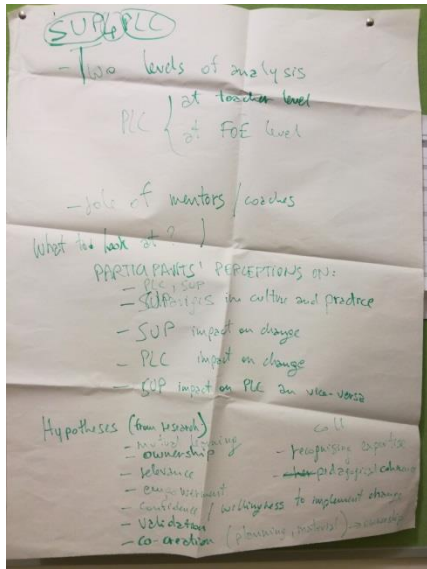 SUP & PLC
- Two levels of analysis
PLC { at teacher level
at FOE level
- role of mentors / coaches
What to look at?
PARTICIPANTS' PERCEPTIONS ON:
- PLC, SUP
- changes in culture and practice
- SUP impact on change
- PLC impact on change
- SUP impact on PLC an vice-versa
Hypotheses (from research)
- mutual learning
- ownership
- recognising expertise
- relevance
- pedagogical
- empowerment
- confidence / willingness to implement change
- validation
- co-creation (planning, material) - ownership